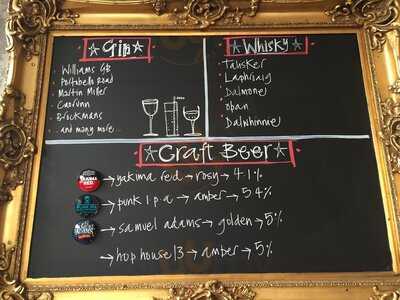 Gin
Williams GB
Portobello Road
Martin Miller
Caorunn
Brockmans
and many more...
Whisky
Talisker
Laphroaig
Dalmore
oban
Dalwhinnie
Craft Beer
→ yakima red → rosy → 4.1%
→ punk I.p.a → amber → 5.4%
→ samuel adams → golden → 5%
→ hop house 13 → amber → 5%